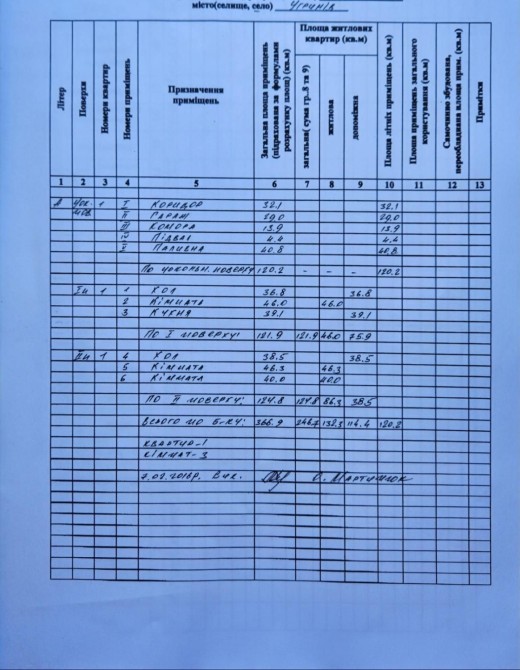 місто(селище, село) Угринів
Літер
Поверхи
Номери квартир
Номери приміщень
Призначення приміщень
Загальна площа приміщень (підрахована за формулами розрахунку площ) (кв.м)
Площа житлових квартир (кв.м)
загальна( сума гр..8 та 9)
житлова
допоміжна
Площа літніх приміщень (кв.м)
Площа приміщень загального користування (кв.м)
Самочинно збудована, переобладнана площа прим. (кв.м)
Примітки
1 2 3 4 5 6 7 8 9 10 11 12 13
А Цок. 1 I Коридор 32.1 32.1
пов. II Гараж 29.0 29.0
III Комора 13.9 13.9
IV Підвал 4.4 4.4
Паливна 40.8 40.8
По цокольн. поверху 120.2 - - - 120.2
Iп 1 1 Хол 36.8 36.8
2 Кімната 46.0 46.0
3 Кухня 39.1 39.1
По I поверху: 121.9 121.9 46.0 75.9
IIп 1 4 Хол 38.5 38.5
5 Кімната 46.3 46.3
6 Кімната 40.0 40.0
По II поверху: 124.8 124.8 86.3 38.5
Всього по б-ку: 366.9 246.7 132.3 114.4 120.2
Квартир-1
Кімнат-3
7.02.2018р. Вик. О. Мартинюк